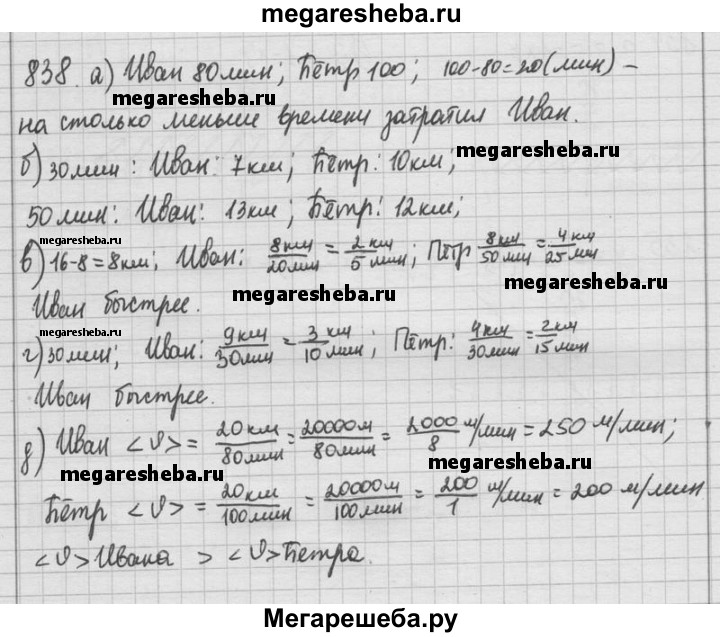 megaresheba.ru
838. а) Иван 80 мин; Пётр 100; 100-80=20(мин) –
megaresheba.ru
на столько меньше времени затратил Иван.
б) 30 мин: Иван: 7 км; Пётр: 10 км;
megaresheba.ru
50 мин: Иван: 13 км; Пётр: 12 км;
megaresheba.ru
в) 16-8=8км; Иван: 8 км/20 мин = 2 км/5 мин; Пётр 8 км/50 мин = 4 км/25 мин
megaresheba.ru
megaresheba.ru
Иван быстрее.
megaresheba.ru
г) 30 мин; Иван: 9 км/30 мин = 3 км/10 мин; Пётр: 4 км/30 мин = 2 км/15 мин
Иван быстрее.
megaresheba.ru
д) Иван <υ> = 20 км/80 мин = 20000 м/80 мин = 2000/8 м/мин = 250 м/мин;
megaresheba.ru
megaresheba.ru
Пётр <υ> = 20 км/100 мин = 20000 м/100 мин = 200/1 м/мин = 200 м/мин
megaresheba.ru
<υ> Ивана > <υ> Петра.
Мегарешеба.ру